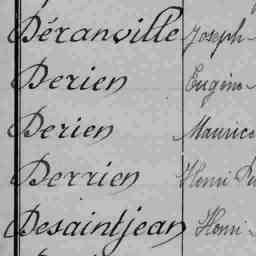 Déranville Joseph
Derien Eugène
Derien Maurice
Derrien Henri
Desaintjean Henri